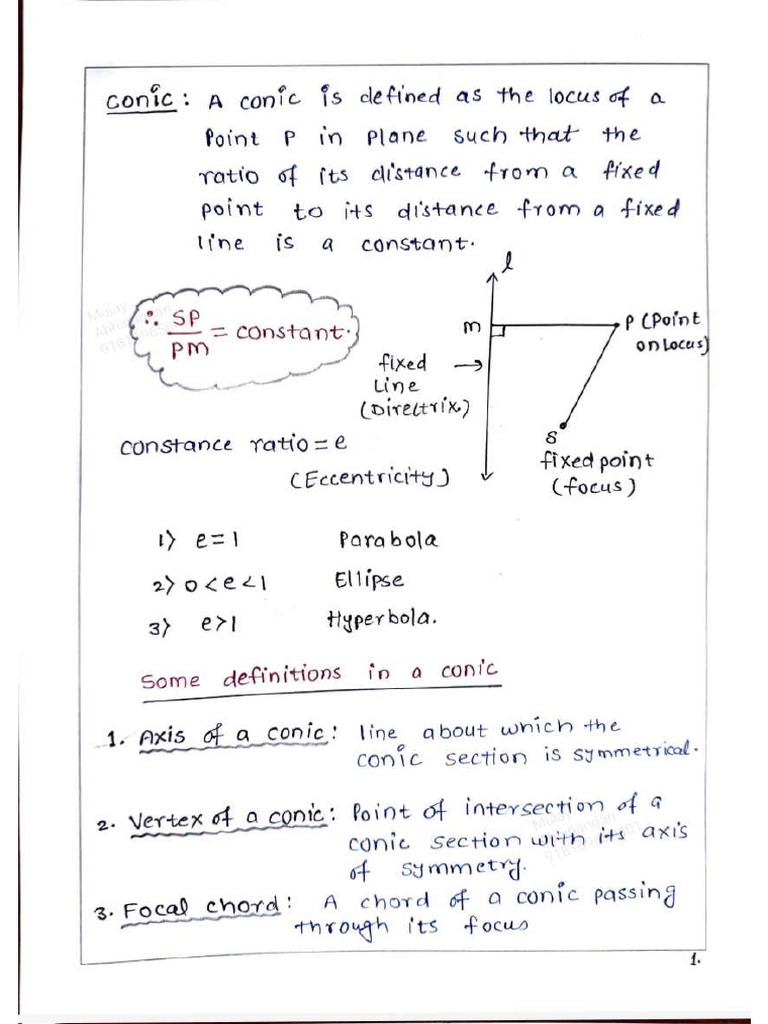 Conic: A conic is defined as the locus of a
Point P in plane such that the
ratio of its distance from a fixed
point to its distance from a fixed
line is a constant.
l
∴ SP/PM = constant.
m
P (Point
on Locus)
fixed
Line
(Directrix)
S
fixed point
(focus)
constance ratio = e
(Eccentricity)
1) e = 1 Parabola
2) 0 < e < 1 Ellipse
3) e > 1 Hyperbola.
Some definitions in a conic
1. Axis of a conic: line about which the
conic section is symmetrical.
2. Vertex of a conic: Point of intersection of a
conic section with its axis
of symmetry.
3. Focal chord: A chord of a conic passing
through its focus
1.